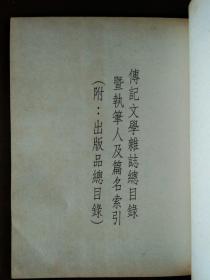 傳記文學雜誌總目錄
暨執筆人及篇名索引
(附：出版品總目錄)